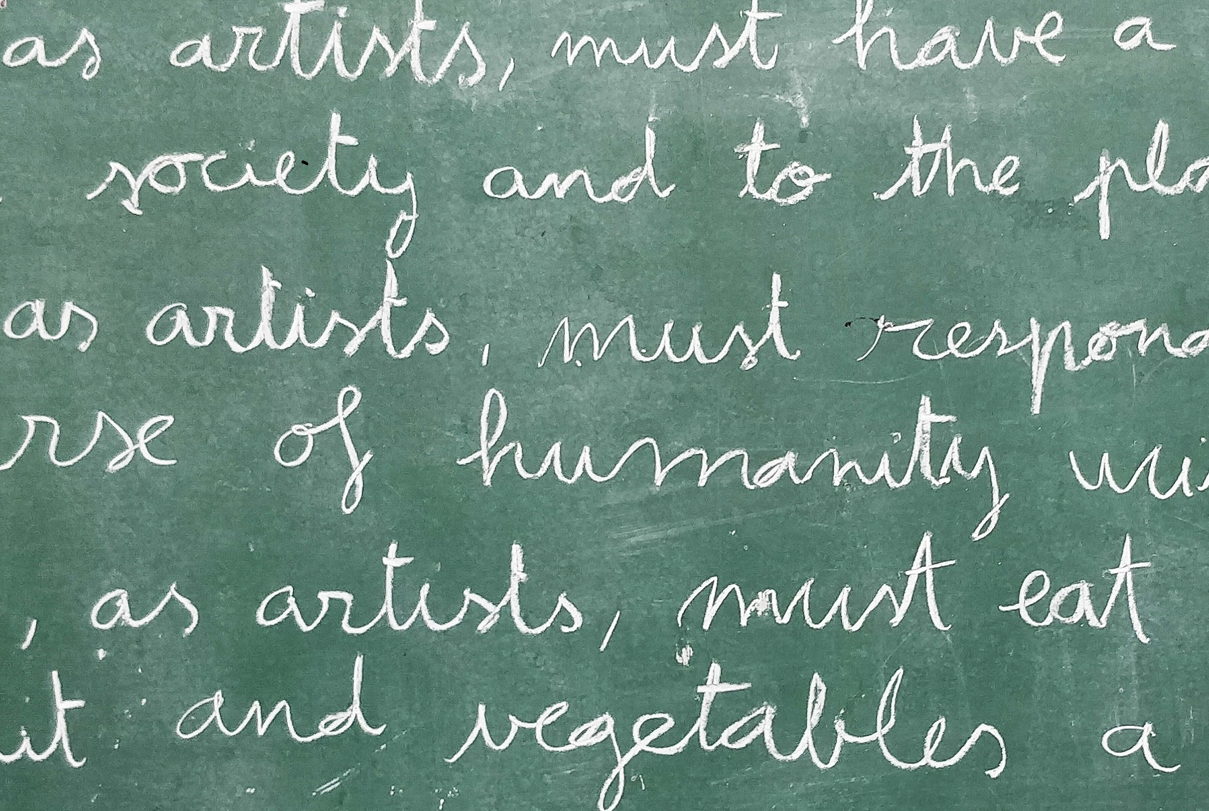 as artists, must have a
society and to the pla
as artists, must respond
rse of humanity wi
, as artists, must eat
it and vegetables a